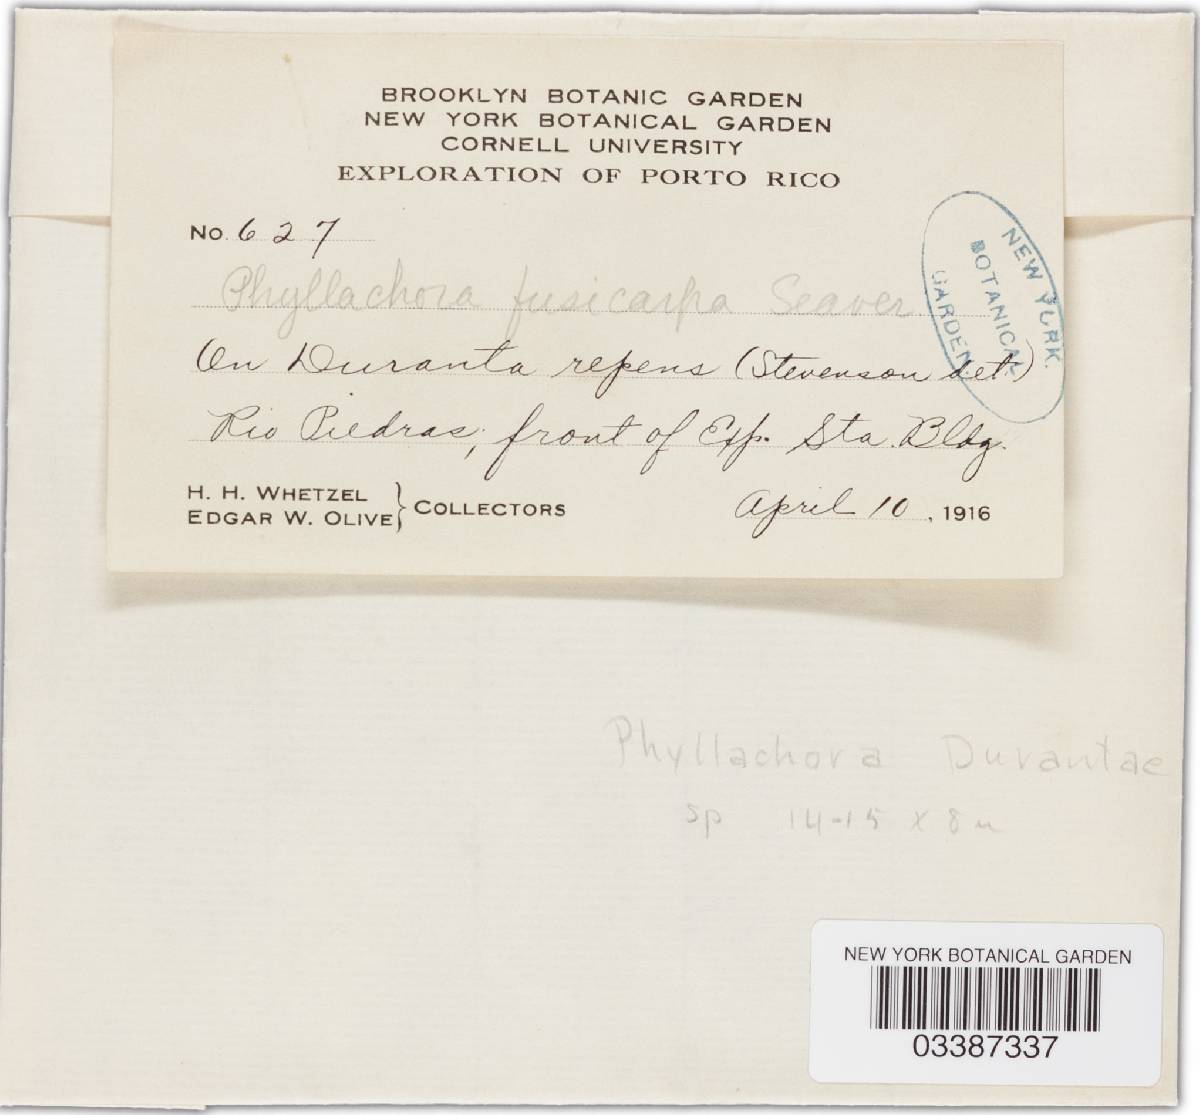 BROOKLYN BOTANIC GARDEN
NEW YORK BOTANICAL GARDEN
CORNELL UNIVERSITY
EXPLORATION OF PORTO RICO
No. 627
Phyllachora fusicarpa Seaver
On Duranta repens (Stevenson det.)
Rio Piedras, front of Exp. Sta. Bldg.
H. H. WHETZEL
EDGAR W. OLIVE } COLLECTORS
April 10, 1916
NEW YORK
BOTANICAL
GARDEN
Phyllachora Durantae
sp 14-15 x 8 u
NEW YORK BOTANICAL GARDEN
03387337